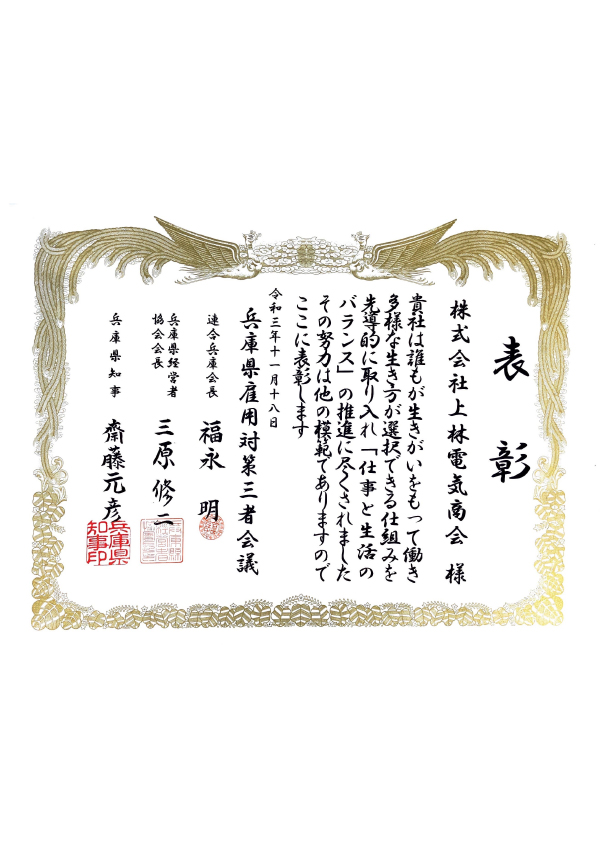 表彰
株式会社上林電気商会 様
貴社は誰もが生きがいをもって働き
多様な生き方が選択できる仕組みを
先導的に取り入れ「仕事と生活の
バランス」の推進に尽くされました
その努力は他の模範でありますので
ここに表彰します
令和三年十一月十八日
兵庫県雇用対策三者会議
連合兵庫会長 福永 明
兵庫県経営者
協会会長 三原修二
兵庫県知事 齋藤元彦
兵庫県
知事印